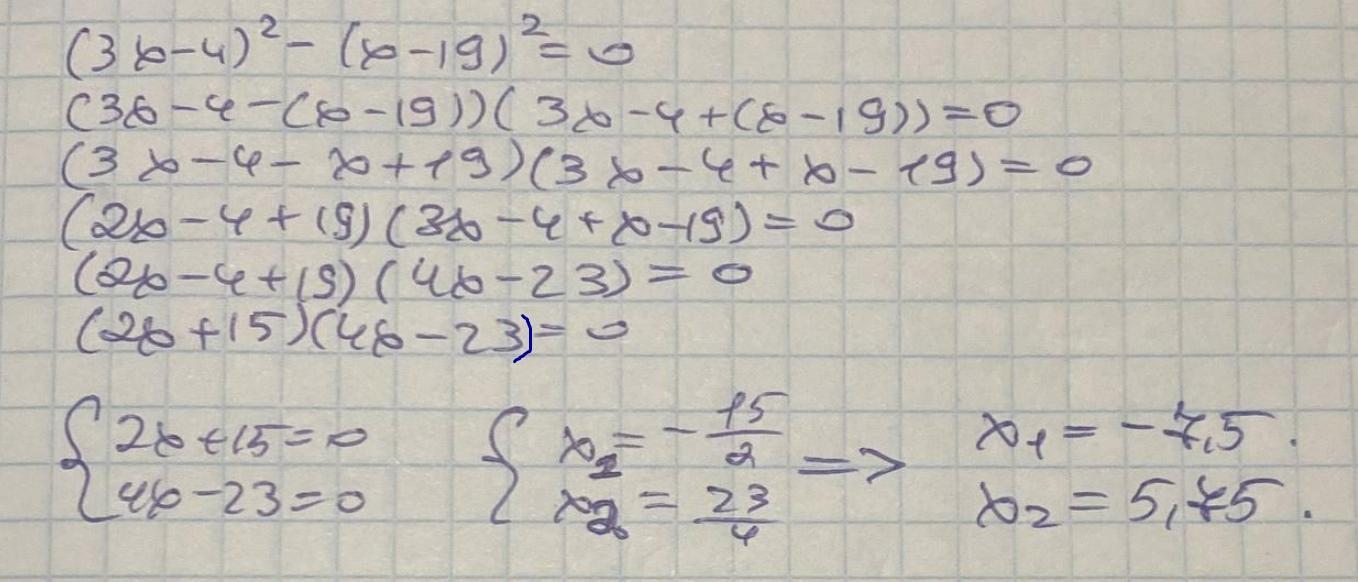 (3x-4)² - (x-19)² = 0
(3x-4-(x-19))(3x-4+(x-19)) = 0
(3x-4-x+19)(3x-4+x-19) = 0
(2x-4+19)(3x-4+x-19) = 0
(2x-4+19)(4x-23) = 0
(2x+15)(4x-23) = 0
{ 2x+15=0 { x₁ = -15/2 => x₁ = -7,5.
4x-23=0 x₂ = 23/4 x₂ = 5,75.